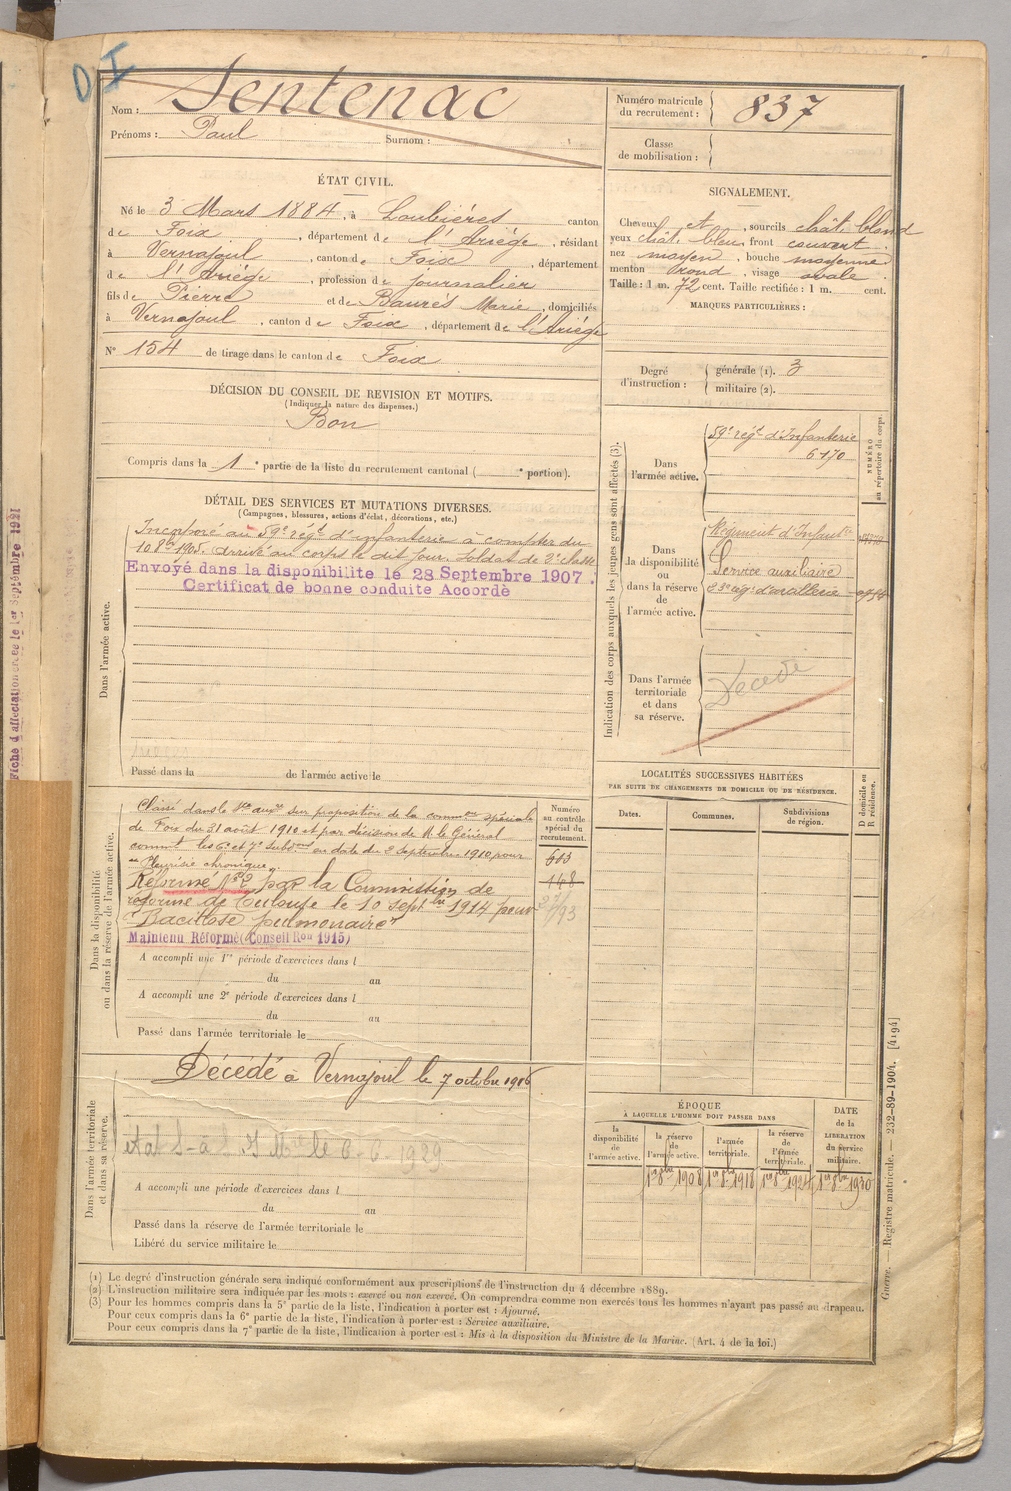 D I
Nom : Sentenac
Prénoms : Paul Surnom :
Numéro matricule du recrutement : 837
Classe de mobilisation :
ÉTAT CIVIL.
Né le 3 Mars 1884, à Loubiéres canton
de Foix, département de l'Ariége, résidant
à Vernajoul, canton de Foix, département
de l'Ariége, profession de journalier
fils de Pierre et de Baurés Marie, domiciliés
à Vernajoul, canton de Foix, département de l'Ariége
N° 154 de tirage dans le canton de Foix
SIGNALEMENT.
Cheveux et, sourcils chât. blond
yeux chât. bleu, front couvert.
nez moyen, bouche moyenne
menton rond, visage ovale.
Taille : 1 m. 72 cent. Taille rectifiée : 1 m. cent.
MARQUES PARTICULIÈRES :
Degré d'instruction : générale (1). 3
militaire (2).
DÉCISION DU CONSEIL DE REVISION ET MOTIFS.
(Indiquer la nature des dispenses.)
Bon
Compris dans la 1e partie de la liste du recrutement cantonal ( e portion).
DÉTAIL DES SERVICES ET MUTATIONS DIVERSES.
(Campagnes, blessures, actions d'éclat, décorations, etc.)
Dans l'armée active.
Incorporé au 59e régt d'infanterie à compter du
10 8bre 1905. arrivé au corps le dit jour. Soldat de 2e classe
Envoyé dans la disponibilite le 28 Septembre 1907.
Certificat de bonne conduite Accordé
Passé dans la de l'armée active le
Indication des corps auxquels les jeunes gens sont affectés (3).
NUMÉRO au répertoire du corps.
Dans l'armée active.
59e régt d'Infanterie
6170
Dans la disponibilité ou dans la réserve de l'armée active.
Régiment d'Infantie
Service auxiliaire
23e rég. d'artillerie
Dans l'armée territoriale et dans sa réserve.
Décédé
LOCALITÉS SUCCESSIVES HABITÉES
PAR SUITE DE CHANGEMENTS DE DOMICILE OU DE RÉSIDENCE.
D domicile ou R résidence.
Dates. Communes. Subdivisions de région.
Dans la disponibilité ou dans la réserve de l'armée active.
Numéro au contrôle spécial du recrutement.
Classé dans le sce auxre sur proposition de la common spéciale
de Foix du 31 août 1910 et par décision de M. le Général
commt les 6e et 7e subdons en date du 2 Septembre 1910, pour
"Pleurésie chronique."
603
148
Réformé N°2 par la Commission de
réforme de Toulouse le 10 septbre 1914 pour
"Bacillose pulmonaire"
Maintenu Réformé (Conseil Ron 1915)
A accompli une 1re période d'exercices dans l
du au
A accompli une 2e période d'exercices dans l
du au
Passé dans l'armée territoriale le
Dans l'armée territoriale et dans sa réserve.
Décédé à Vernajoul le 7 octobre 1916
1929
A accompli une période d'exercices dans l
du au
Passé dans la réserve de l'armée territoriale le
Libéré du service militaire le
ÉPOQUE
À LAQUELLE L'HOMME DOIT PASSER DANS
la disponibilité de l'armée active.
la réserve de l'armée active.
l'armée territoriale.
la réserve de l'armée territoriale.
DATE de la LIBÉRATION du service militaire.
1er 8bre 1908 1er 8bre 1918 1er 8bre 1924 1er 8bre 1930
(1) Le degré d'instruction générale sera indiqué conformément aux prescriptions de l'instruction du 4 décembre 1889.
(2) L'instruction militaire sera indiquée par les mots : exercé ou non exercé. On comprendra comme non exercés tous les hommes n'ayant pas passé au drapeau.
(3) Pour les hommes compris dans la 5e partie de la liste, l'indication à porter est : Ajourné.
Pour ceux compris dans la 6e partie de la liste, l'indication à porter est : Service auxiliaire.
Pour ceux compris dans la 7e partie de la liste, l'indication à porter est : Mis à la disposition du Ministre de la Marine. (Art. 4 de la loi.)
Guerre. — Registre matricule. — 232-89-1904. [4194]
Septembre 1921